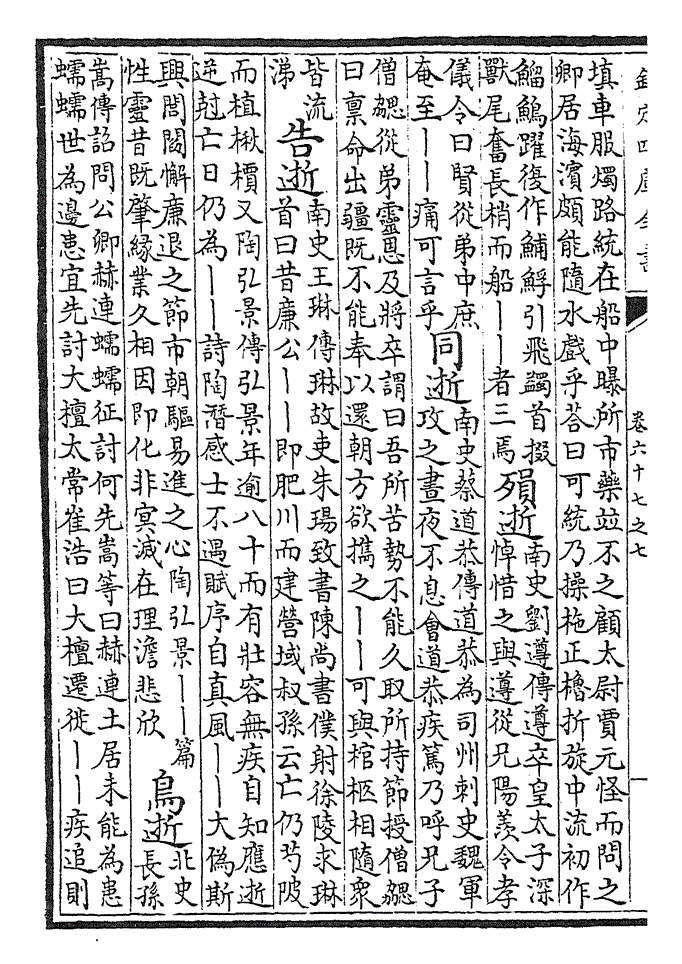 欽定四庫全書
卷六十七之七
一
填車服燭路統在船中曝所市藥竝不之顧太尉賈元怪而問之
卿居海濱頗能隨水戲乎荅曰可統乃操柂正櫓折旋中流初作
鰡鷠躍後作鯆䱐引飛鷁首掇
獸尾奮長梢而船丨丨者三焉
殞逝
南史劉遵傳遵卒皇太子深
悼惜之與遵從兄陽羨令孝
儀令曰賢從弟中庶
奄至丨丨痛可言乎
同逝
南史蔡道恭傳道恭為司州刺史魏軍
攻之晝夜不息會道恭疾篤乃呼兄子
僧勰從弟靈恩及將卒謂曰吾所苦勢不能久取所持節授僧勰
曰禀命出疆既不能奉以還朝方欲攜之丨丨可與棺柩相隨衆
皆流
涕
告逝
南史王琳傳琳故吏朱瑒致書陳尚書僕射徐陵求琳
首曰昔廉公丨丨即肥川而建營域叔孫云亡仍芍陂
而植楸檟又陶弘景傳弘景年逾八十而有壯容無疾自知應逝
逆尅亡日仍為丨丨詩陶潛感士不遇賦序自真風丨丨大偽斯
興閭閻懈廉退之節市朝驅易進之心陶弘景丨丨篇
性靈昔既肇緣業久相因即化非冥滅在理澹悲欣
鳥逝
北史
長孫
嵩傳詔問公卿赫連蠕蠕征討何先嵩等曰赫連土居未能為患
蠕蠕世為邊患宜先討大檀太常崔浩曰大檀遷徙丨丨疾追則